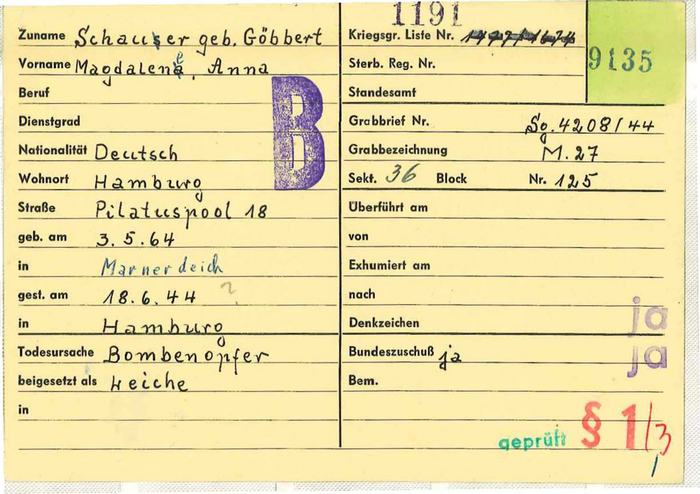 1191
Zuname Schauser geb. Göbbert
Vorname Magdalene, Anna
Beruf
Dienstgrad
B
Nationalität Deutsch
Wohnort Hamburg
Straße Pilatuspool 18
geb. am 3.5.64
in Marnerdeich
gest. am 18.6.44 ?
in Hamburg
Todesursache Bombenopfer
beigesetzt als Leiche
in
Kriegsgr. Liste Nr.
9135
Sterb. Reg. Nr.
Standesamt
Grabbrief Nr. So.4208/44
Grabbezeichnung M.27
Sekt. 36 Block Nr. 125
Überführt am
von
Exhumiert am
nach
Denkzeichen ja
Bundeszuschuß ja ja
Bem.
geprüft § 1/3